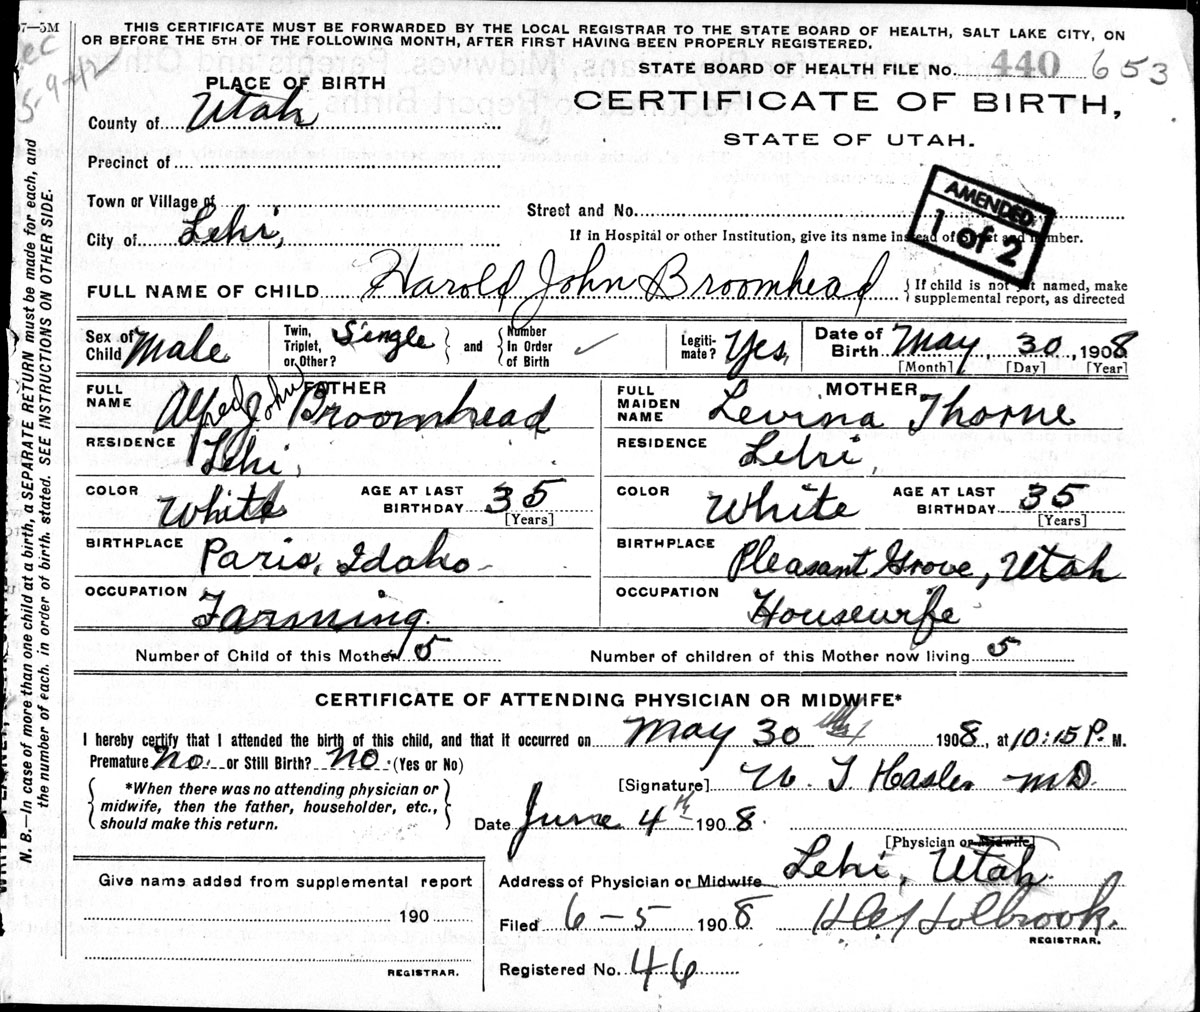 07—5M
THIS CERTIFICATE MUST BE FORWARDED BY THE LOCAL REGISTRAR TO THE STATE BOARD OF HEALTH, SALT LAKE CITY, ON
OR BEFORE THE 5TH OF THE FOLLOWING MONTH, AFTER FIRST HAVING BEEN PROPERLY REGISTERED.
5-9-42
STATE BOARD OF HEALTH FILE No. 440 653
PLACE OF BIRTH
CERTIFICATE OF BIRTH,
STATE OF UTAH.
County of Utah
Precinct of
Town or Village of
Street and No.
AMENDED
1 of 2
City of Lehi,
If in Hospital or other Institution, give its name instead of street and number.
FULL NAME OF CHILD Harold John Broomhead
If child is not yet named, make
supplemental report, as directed
Sex of Child Male
Twin, Triplet, or Other? Single and Number In Order of Birth ✓
Legiti-mate? Yes,
Date of Birth May, 30, 1908
[Month] [Day] [Year]
FATHER
FULL NAME Alfred John Broomhead
MOTHER
FULL MAIDEN NAME Levina Thorne
RESIDENCE Lehi,
RESIDENCE Lehi,
COLOR White AGE AT LAST BIRTHDAY 35 [Years]
COLOR White AGE AT LAST BIRTHDAY 35 [Years]
BIRTHPLACE Paris, Idaho
BIRTHPLACE Pleasant Grove, Utah
OCCUPATION Farming.
OCCUPATION Housewife
Number of Child of this Mother 5
Number of children of this Mother now living 5
CERTIFICATE OF ATTENDING PHYSICIAN OR MIDWIFE*
I hereby certify that I attended the birth of this child, and that it occurred on May 30 1908, at 10:15 P. M.
Premature No. or Still Birth? No. (Yes or No)
*When there was no attending physician or
midwife, then the father, householder, etc.,
should make this return.
[Signature] Hasler MD.
Date June 4th 1908.
[Physician or Midwife]
Address of Physician or Midwife Lehi, Utah.
Give name added from supplemental report
190
REGISTRAR.
Filed 6-5 1908 Holbrook.
REGISTRAR.
Registered No. 46
N. B.—In case of more than one child at a birth, a SEPARATE RETURN must be made for each, and
the number of each, in order of birth, stated. SEE INSTRUCTIONS ON OTHER SIDE.